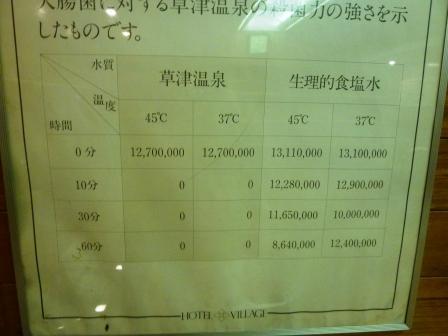 大腸菌に対する草津温泉の殺菌力の強さを示
したものです。
水質 草津温泉 生理的食塩水
温度 45℃ 37℃ 45℃ 37℃
時間
0分 12,700,000 12,700,000 13,110,000 13,100,000
10分 0 0 12,280,000 12,900,000
30分 0 0 11,650,000 10,000,000
60分 0 0 8,640,000 12,400,000
HOTEL VILLAGE